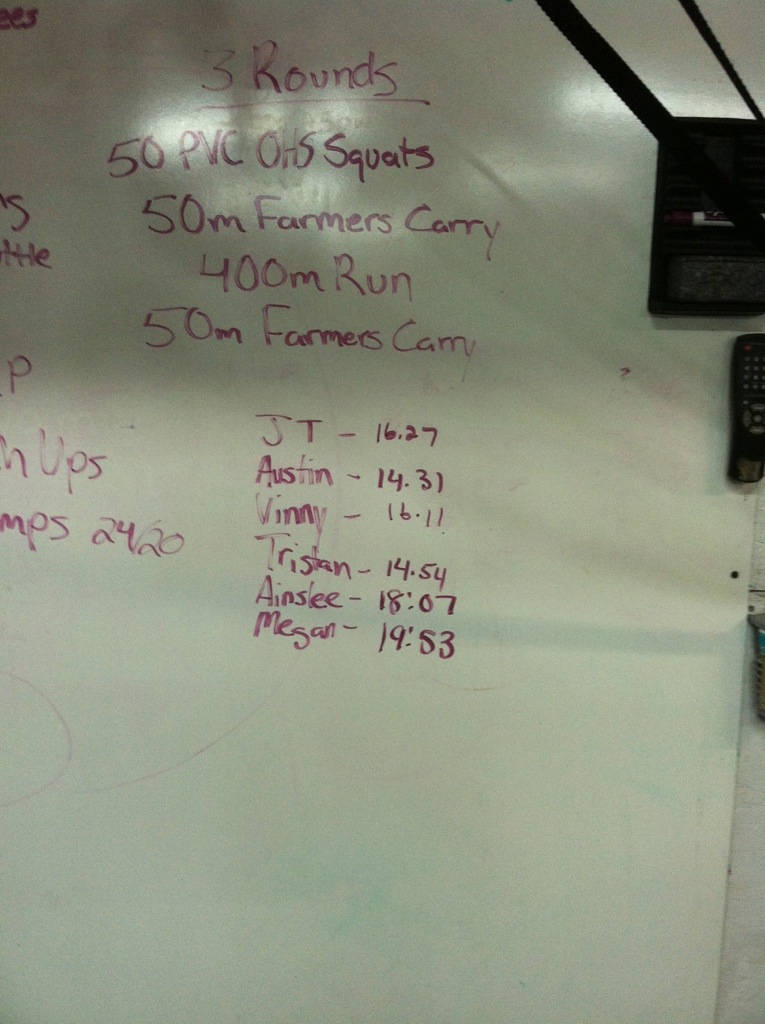 3 Rounds
50 PVC OHS Squats
50m Farmers Carry
400m Run
50m Farmers Carry
JT - 16.27
Austin - 14.31
Vinny - 16.11
Tristan - 14.54
Ainslee - 18:07
Megan - 19:53
ees
ttle
P
Ups
mps 24/20